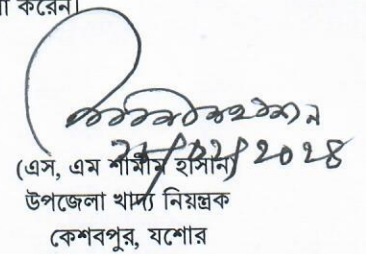 করেন।
২০২৪
(এস, এম শামীম হাসান)
উপজেলা খাদ্য নিয়ন্ত্রক
কেশবপুর, যশোর